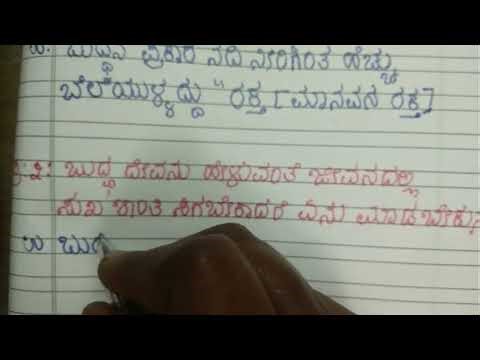 ಉ. ಬುದ್ಧನ ಪ್ರಕಾರ ನದಿ ನೀರಿಗಿಂತ ಹೆಚ್ಚು
ಬೆಲೆಯುಳ್ಳದ್ದು " ರಕ್ತ [ ಮಾನವನ ರಕ್ತ ]
ಪ್ರ.೩: ಬುದ್ಧ ದೇವನು ಹೇಳುವಂತೆ ಜೀವನದಲ್ಲಿ
ಸುಖ ಶಾಂತಿ ಸಿಗಬೇಕಾದರೆ ಏನು ಮಾಡಬೇಕು
ಉ